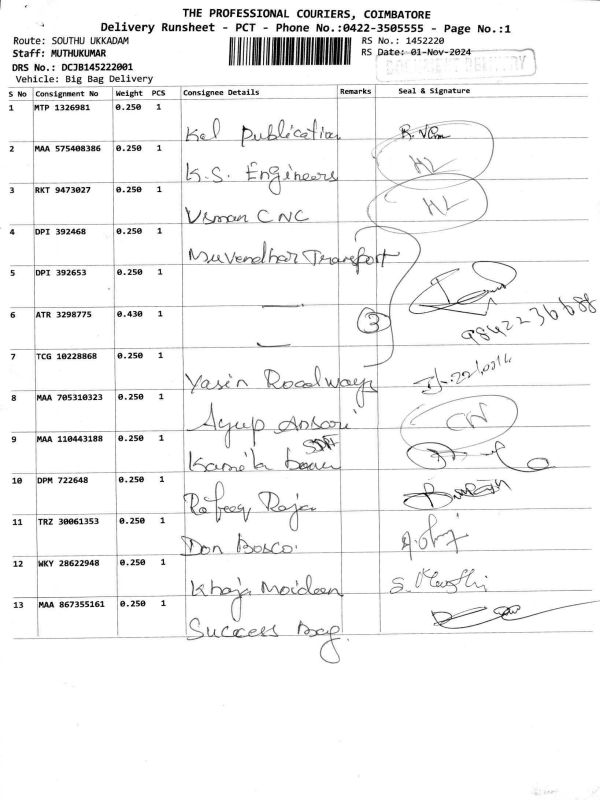 THE PROFESSIONAL COURIERS, COIMBATORE
Delivery Runsheet - PCT - Phone No.:0422-3505555 - Page No.:1
Route: SOUTHU UKKADAM RS No.: 1452220
Staff: MUTHUKUMAR RS Date: 01-Nov-2024
DRS No.: DCJB145222001
Vehicle: Big Bag Delivery
S No Consignment No Weight PCS Consignee Details Remarks Seal & Signature
1 MTP 1326981 0.250 1
Kal Publication
2 MAA 575408386 0.250 1
K.S. Engineers HL
3 RKT 9473027 0.250 1
Usman CNC HL
4 DPI 392468 0.250 1
Muvendhar Transport
5 DPI 392653 0.250 1
6 ATR 3298775 0.430 1
3
9842236688
7 TCG 10228868 0.250 1
Yasin Roadways
8 MAA 705310323 0.250 1
Ayup Ansari CN
9 MAA 110443188 0.250 1
10 DPM 722648 0.250 1
Rafeeq Raja
11 TRZ 30061353 0.250 1
Don Bosco.
12 WKY 28622948 0.250 1
Khaja Moideen
13 MAA 867355161 0.250 1
Success Bag.